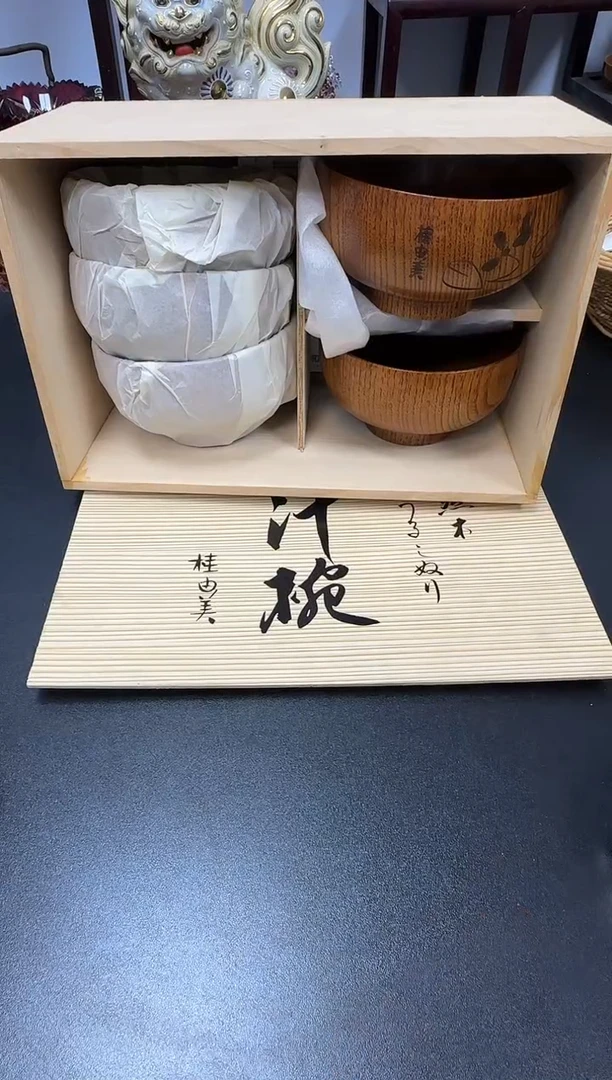 桂由美
然木
うるしぬり
汁椀
桂由美